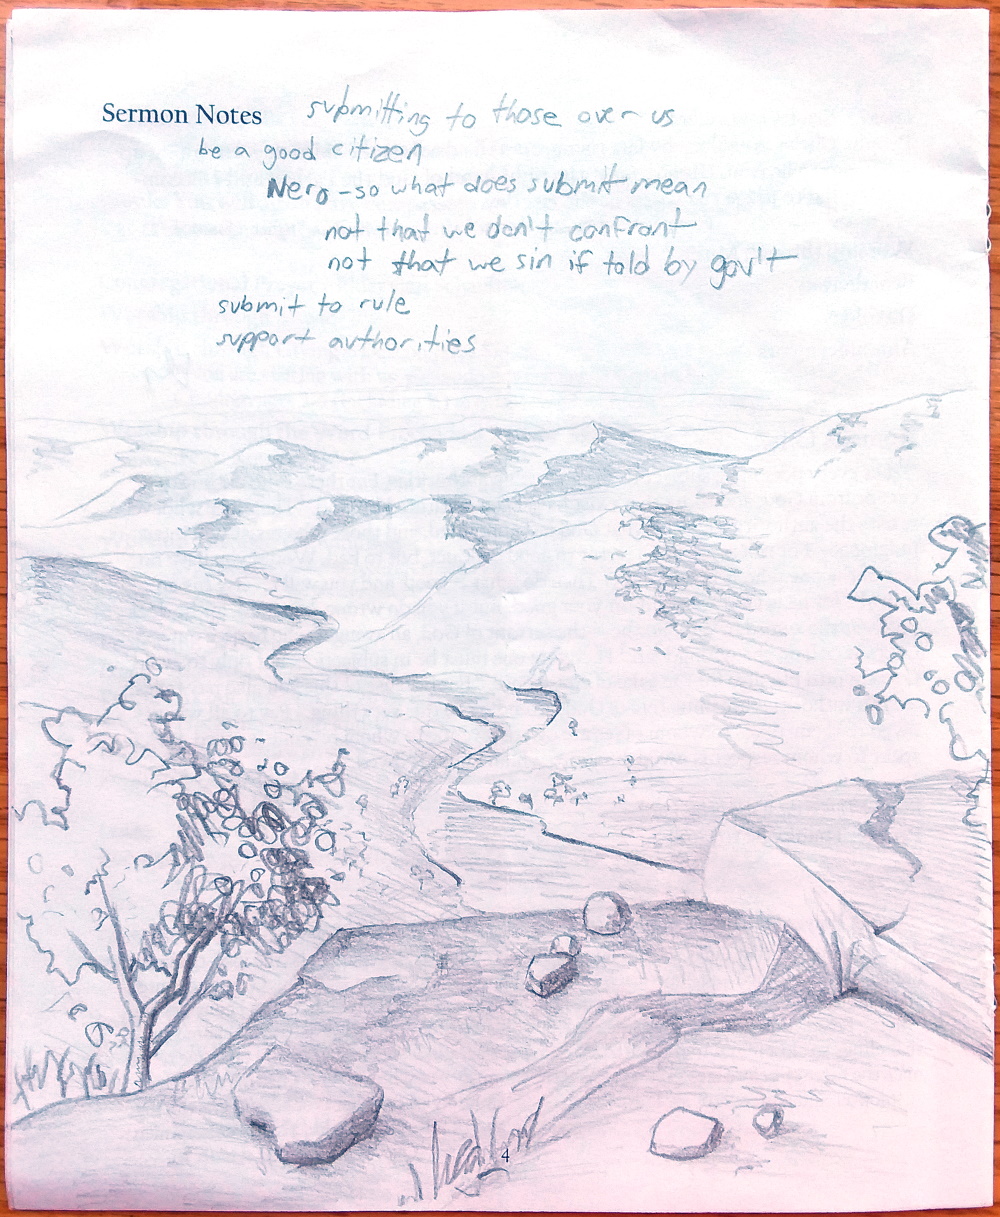 Sermon Notes submitting to those over us
be a good citizen
Nero - so what does submit mean
not that we don't confront
not that we sin if told by gov't
submit to rule
support authorities
4